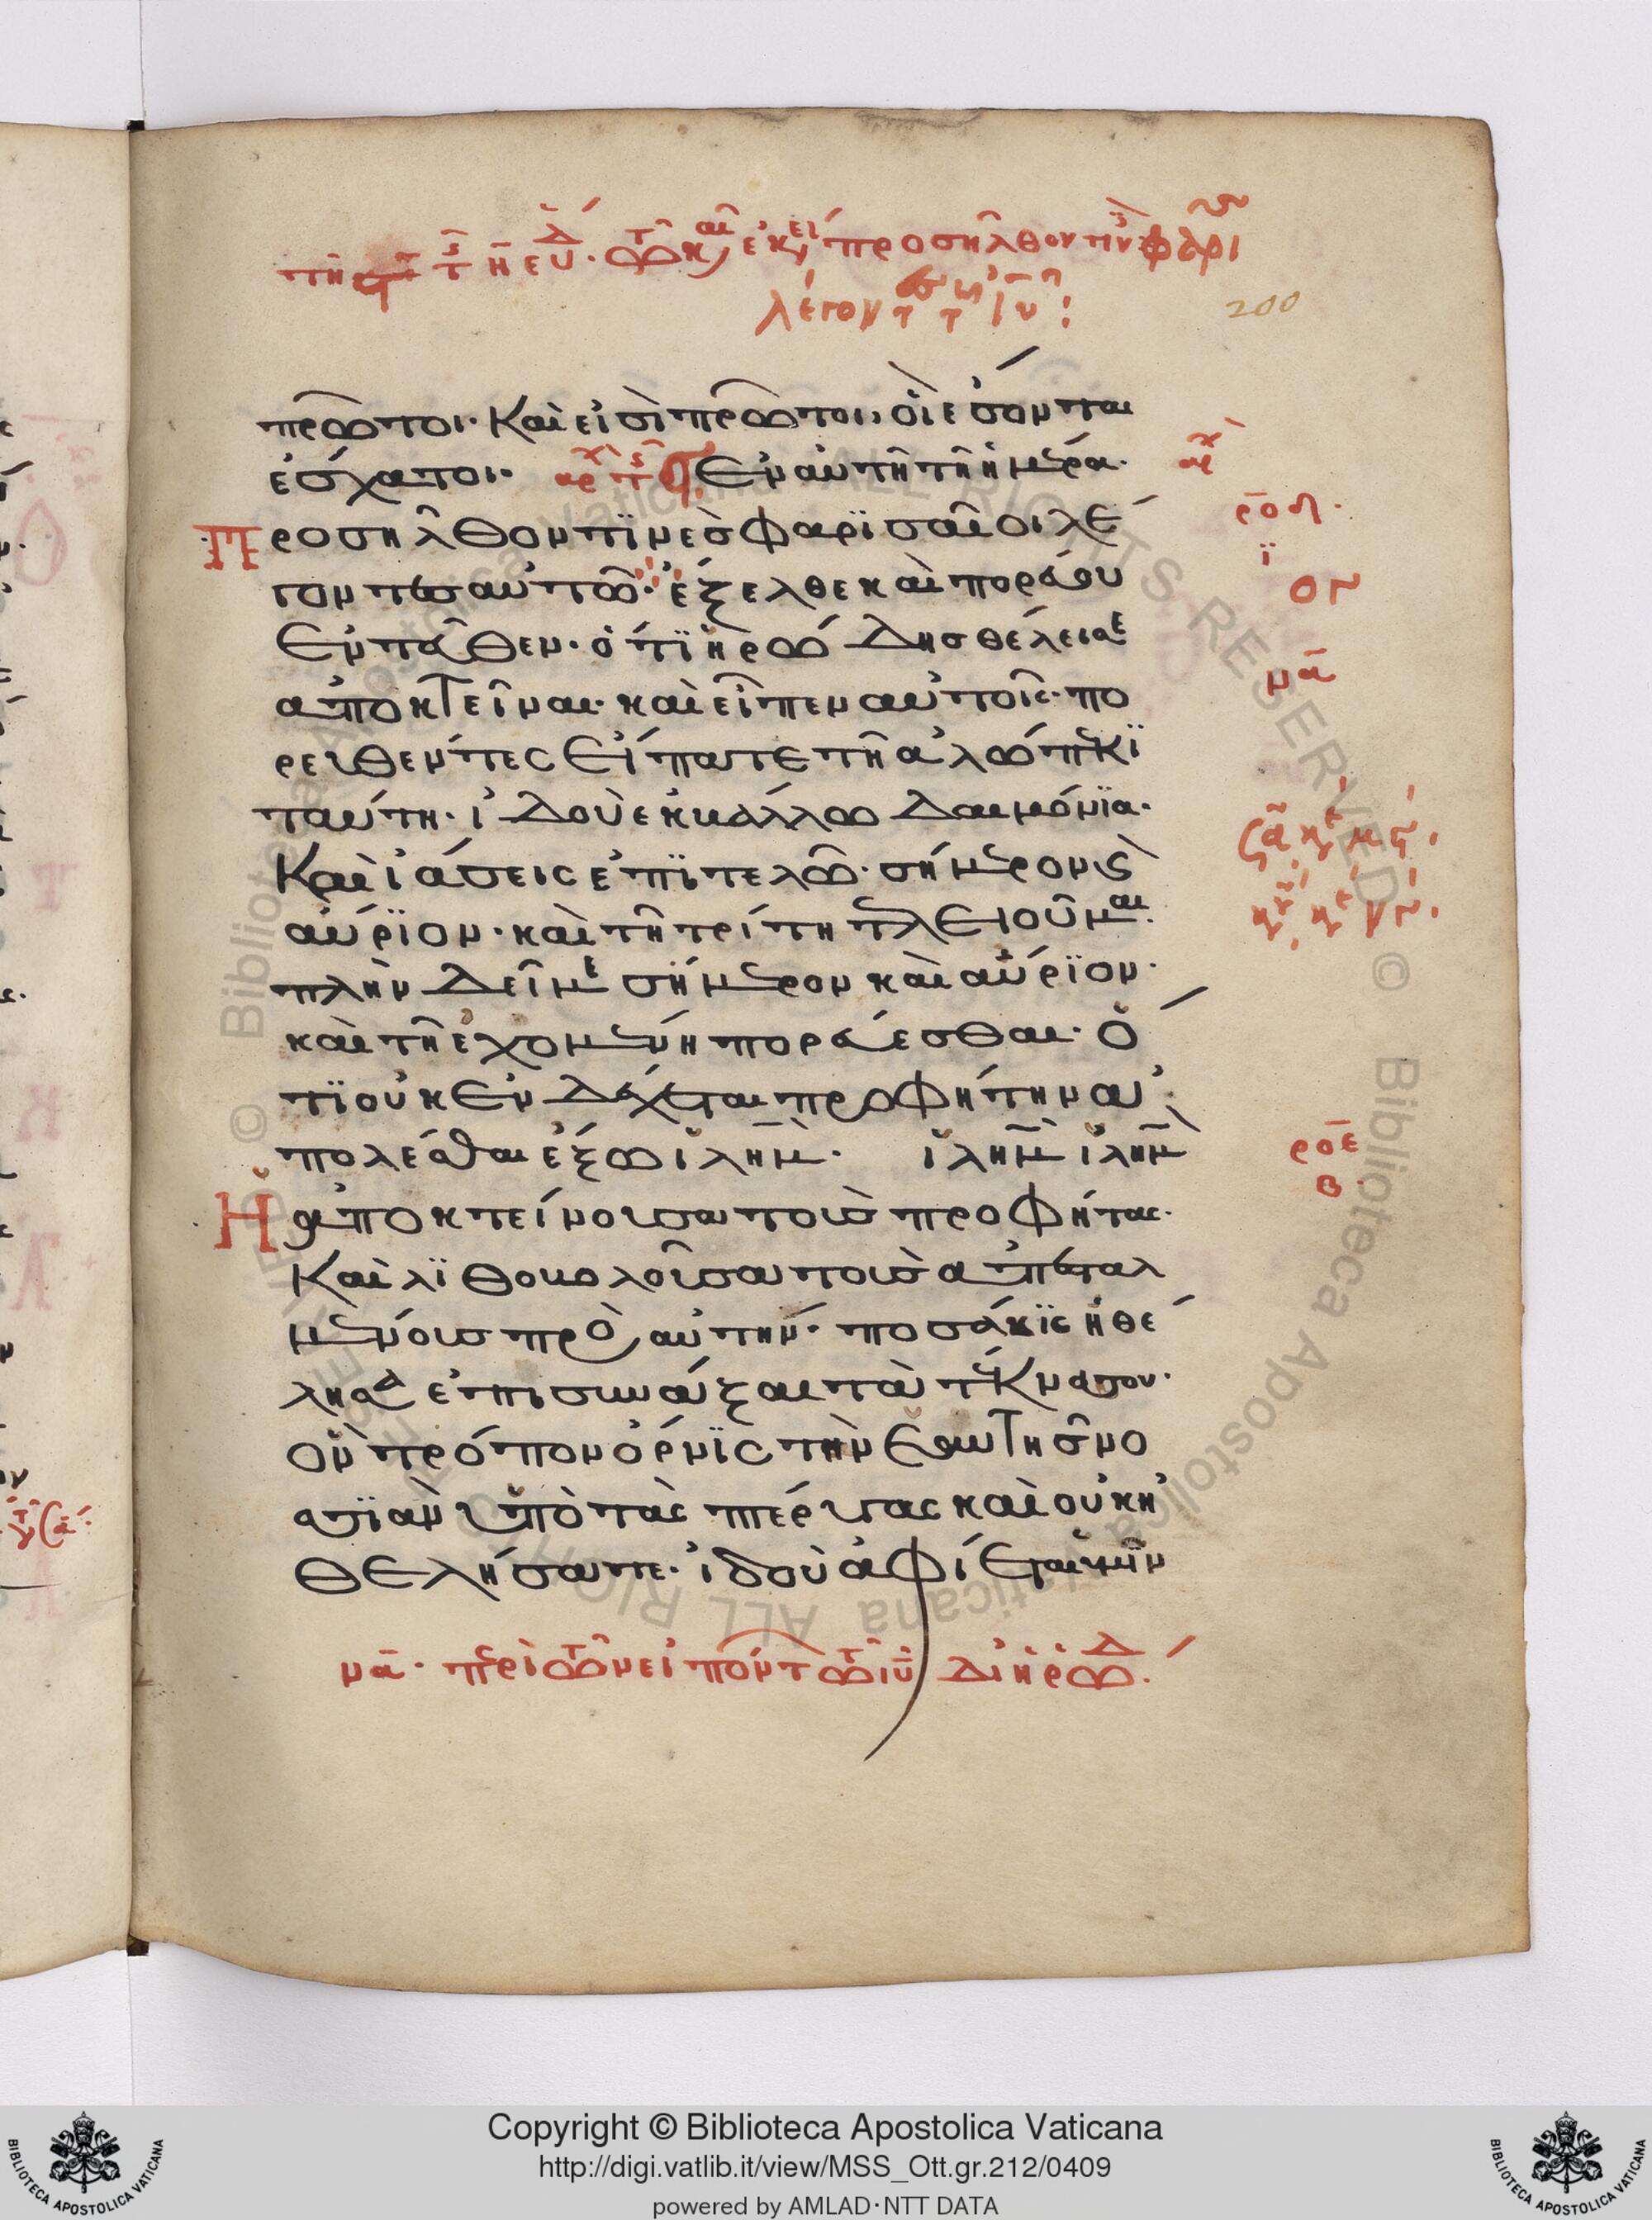 προσῆλθον
200
πρῶτοι· καὶ εἰσὶ πρῶτοι, οἳ ἔσονται
ἔσχατοι· Ἐν αὐτῆ τῆ ἡμέρα·
Προσῆλθον τϊνὲς φαρϊσαῖοι λέ
γοντες αὐτῶ· ἔξελθε καὶ πορεύου
ἐντεῦθεν· ὅτϊ ἡρώδης θέλει σε
ἀποκτεῖναι· καὶ εἶπεν αὐτοῖς· πο
ρευθέντες εἴπατε τῆ ἀλώπεκϊ
ταύτη· ἰδοὺ ἐκβάλλω δαιμόνϊα·
καὶ ἰάσεις ἐπϊτελῶ· σήμερον καὶ
αύρϊον· καὶ τῆ τρίτη τελειοῦμαι·
πλὴν δεῖ με σήμερον καὶ αύρϊον·
καὶ τῆ ἐχομένη πορεύεσθαι· ὅ
τϊ οὐκ ἐνδέχεται προφήτην ἀ
πολέσθαι ἔξω ἰλημ̄· ἰλημ̄ ἰλημ̄
Ἡ ἀποκτείνουσα τοὺς προφήτας·
καὶ λϊθοβολοῦσα τοὺς ἀπεσταλ
μένους πρὸς αὐτήν· ποσάκϊς ἠθέ
λησα ἐπισυνάξαι τὰ τέκνα σου·
ὃν τρόπον ὄρνϊς τὴν ἑαυτῆς νο
σϊὰν ὑπὸ τὰς πτέρυγας καὶ οὐκ ἠ
θελήσατε· ἰδοὺ ἀφίεται ὑμῖν
ροδ·
ϊ
μα
ροε
β
μα· περὶ τῶν εἰπόντων τῶ ιῡ δι' ἡρώδ·
Copyright © Biblioteca Apostolica Vaticana
http://digi.vatlib.it/view/MSS_Ott.gr.212/0409
powered by AMLAD·NTT DATA
BIBLIOTECA APOSTOLICA VATICANA
BIBLIOTECA APOSTOLICA VATICANA